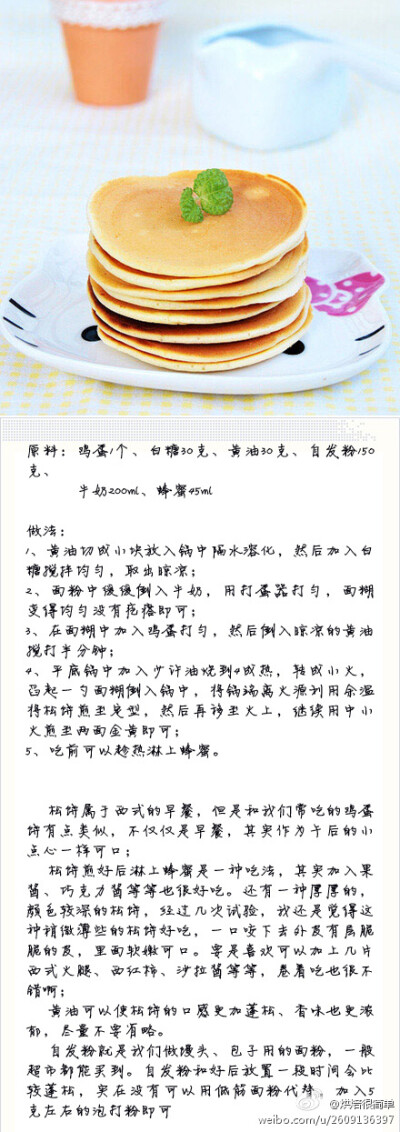 原料：鸡蛋1个、白糖30克、黄油30克、自发粉150
克、
牛奶200ml、蜂蜜45ml
做法：
1、黄油切成小块放入锅中隔水溶化，然后加入白
糖搅拌均匀，取出晾凉；
2、面粉中缓缓倒入牛奶，用打蛋器打匀，面糊
变得均匀没有疙瘩即可；
3、在面糊中加入鸡蛋打匀，然后倒入晾凉的黄油
搅打半分钟；
4、平底锅中加入少许油烧到4成热，转成小火，
舀起一勺面糊倒入锅中，将锅端离火源利用余温
将松饼煎至定型，然后再移至火上，继续用中小
火煎至两面金黄即可；
5、吃前可以趁热淋上蜂蜜。
松饼属于西式的早餐，但是和我们常吃的鸡蛋
饼有点类似，不仅仅是早餐，其实作为午后的小
点心一样可口；
松饼煎好后淋上蜂蜜是一种吃法，其实加入果
酱、巧克力酱等等也很好吃。还有一种厚厚的，
颜色较深的松饼，经过几次试验，我还是觉得这
种稍微薄些的松饼好吃，一口咬下去外皮有扁脆
脆的皮，里面软嫩可口。要是喜欢可以加上几片
西式火腿、西红柿、沙拉酱等等，卷着吃也很不
错啊；
黄油可以使松饼的口感更加蓬松、香味也更浓
郁，尽量不要省略。
自发粉就是我们做馒头、包子用的面粉，一般
超市都能买到。自发粉和好后放置一段时间会比
较蓬松，实在没有可以用低筋面粉代替，加入5
克左右的泡打粉即可
@烘焙很简单
weibo.com/u/2609136397